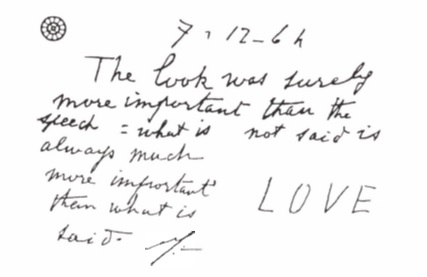 7-12-64
The look was surely
more important than the
speech = what is not said is
always much
more important
than what is
said.
LOVE